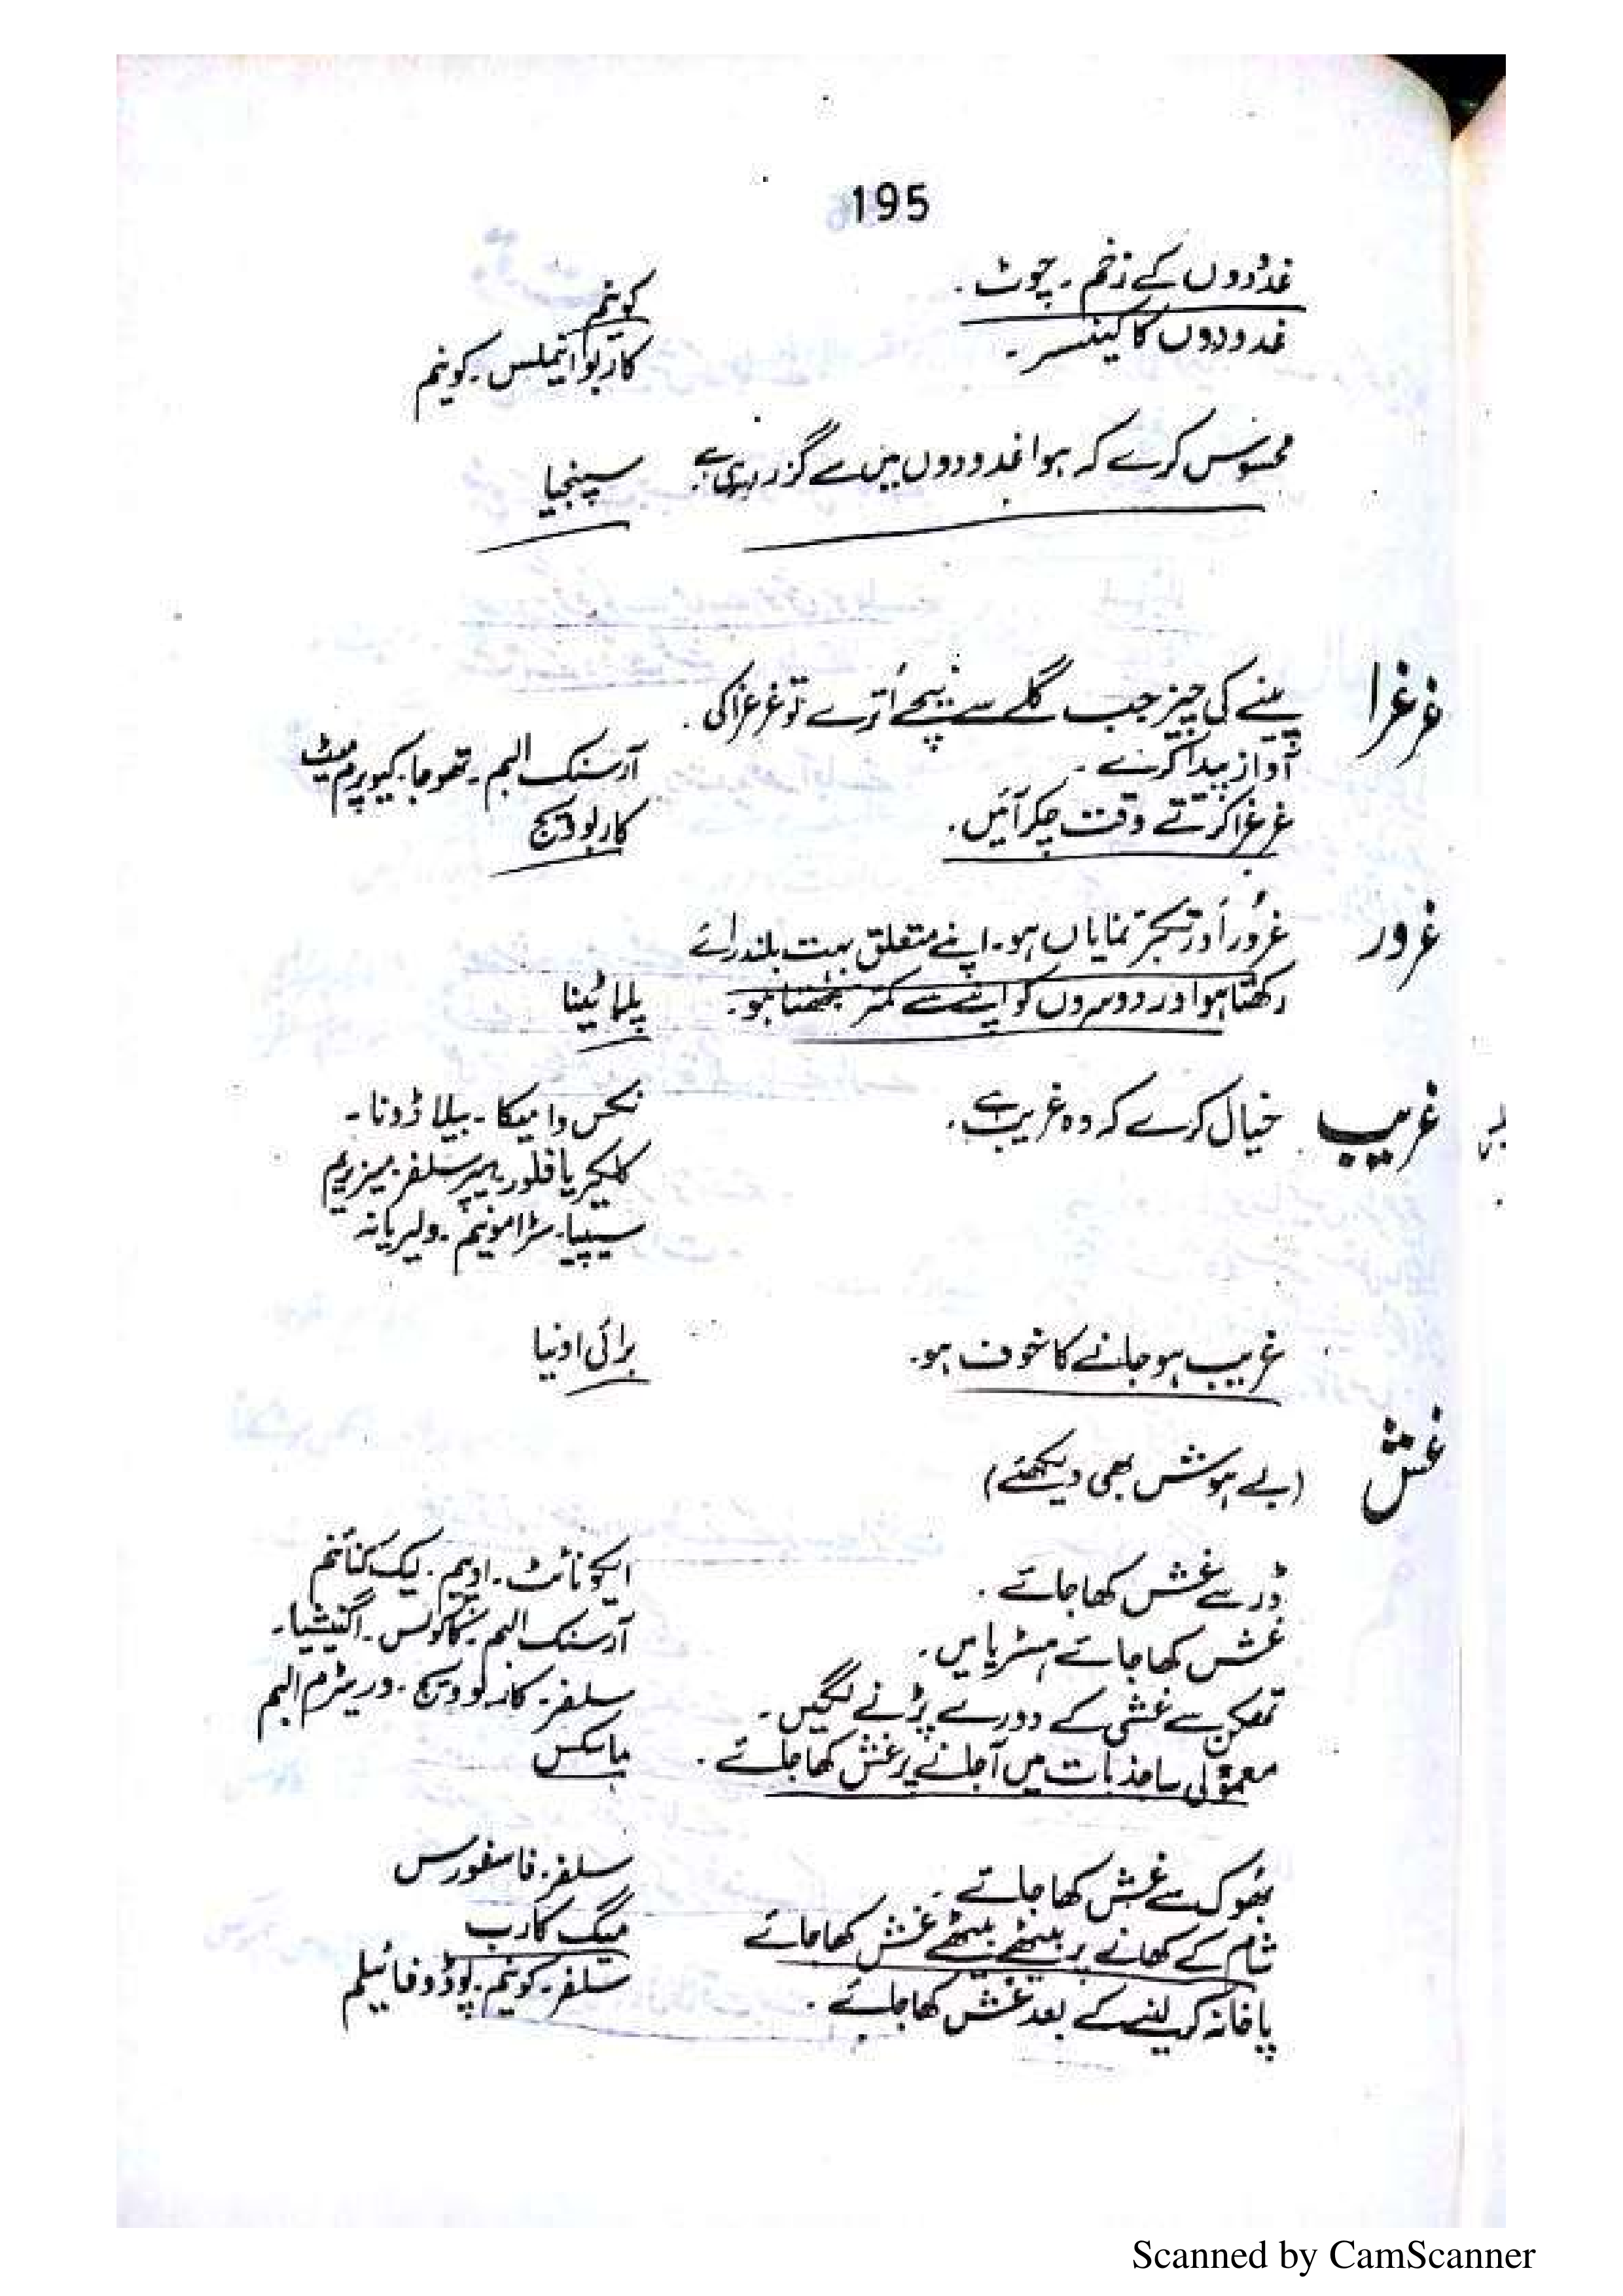 195
غدودوں کے زخم ۔ چوٹ ۔ کونیم
غدودوں کا کینسر ۔ کاربو انیملس ۔ کونیم
محسوس کرے کہ ہوا غدودوں میں سے گزر رہی ہے۔ سپنجیا
غرغرا پینے کی چیز جب گلے سے نیچے اُترے تو غرغرا کی
آواز پیدا کرے ۔ آرسنک البم ۔ تھوجا ۔ کیوپرم میٹ
غرغرا کرتے وقت چکر آئیں ۔ کاربو ویج
غرور غرُور اور تکبّر نمایاں ہو ۔ اپنے متعلق بہت بلند رائے
رکھتا ہو اور دوسروں کو اپنے سے کمتر سمجھتا ہو ۔ پلاٹینا
غریب خیال کرے کہ وہ غریب ہے ۔ نکس وامیکا ۔ بیلاڈونا ۔
کلکیریا فلور ۔ ہیپر سلفر ۔ میزیریم
سیپیا ۔ سٹرامونیم ۔ ولیریانہ
غریب ہو جانے کا خوف ہو ۔ برائی اونیا
غش (بے ہوش بھی دیکھئے)
ڈر سے غش کھا جائے ۔ ایکونائٹ ۔ اوپیم ۔ لیک کنائنم
غش کھا جائے ہسٹریا میں ۔ آرسنک البم ۔ کاکولس ۔ اگنیشیا ۔
تھکن سے غشی کے دورے پڑنے لگیں ۔ سلفر ۔ کاربو ویج ۔ وریٹرم البم
معمولی سا جذبات میں آ جانے پر غش کھا جائے ۔ ماسکس
بھوک سے غش کھا جائے ۔ سلفر ۔ فاسفورس
شام کے کھانے پر بیٹھے بیٹھے غش کھا جائے میگ کارب
پاخانہ کر لینے کے بعد غش کھا جائے ۔ سلفر ۔ کونیم ۔ پوڈوفائیلم
Scanned by CamScanner